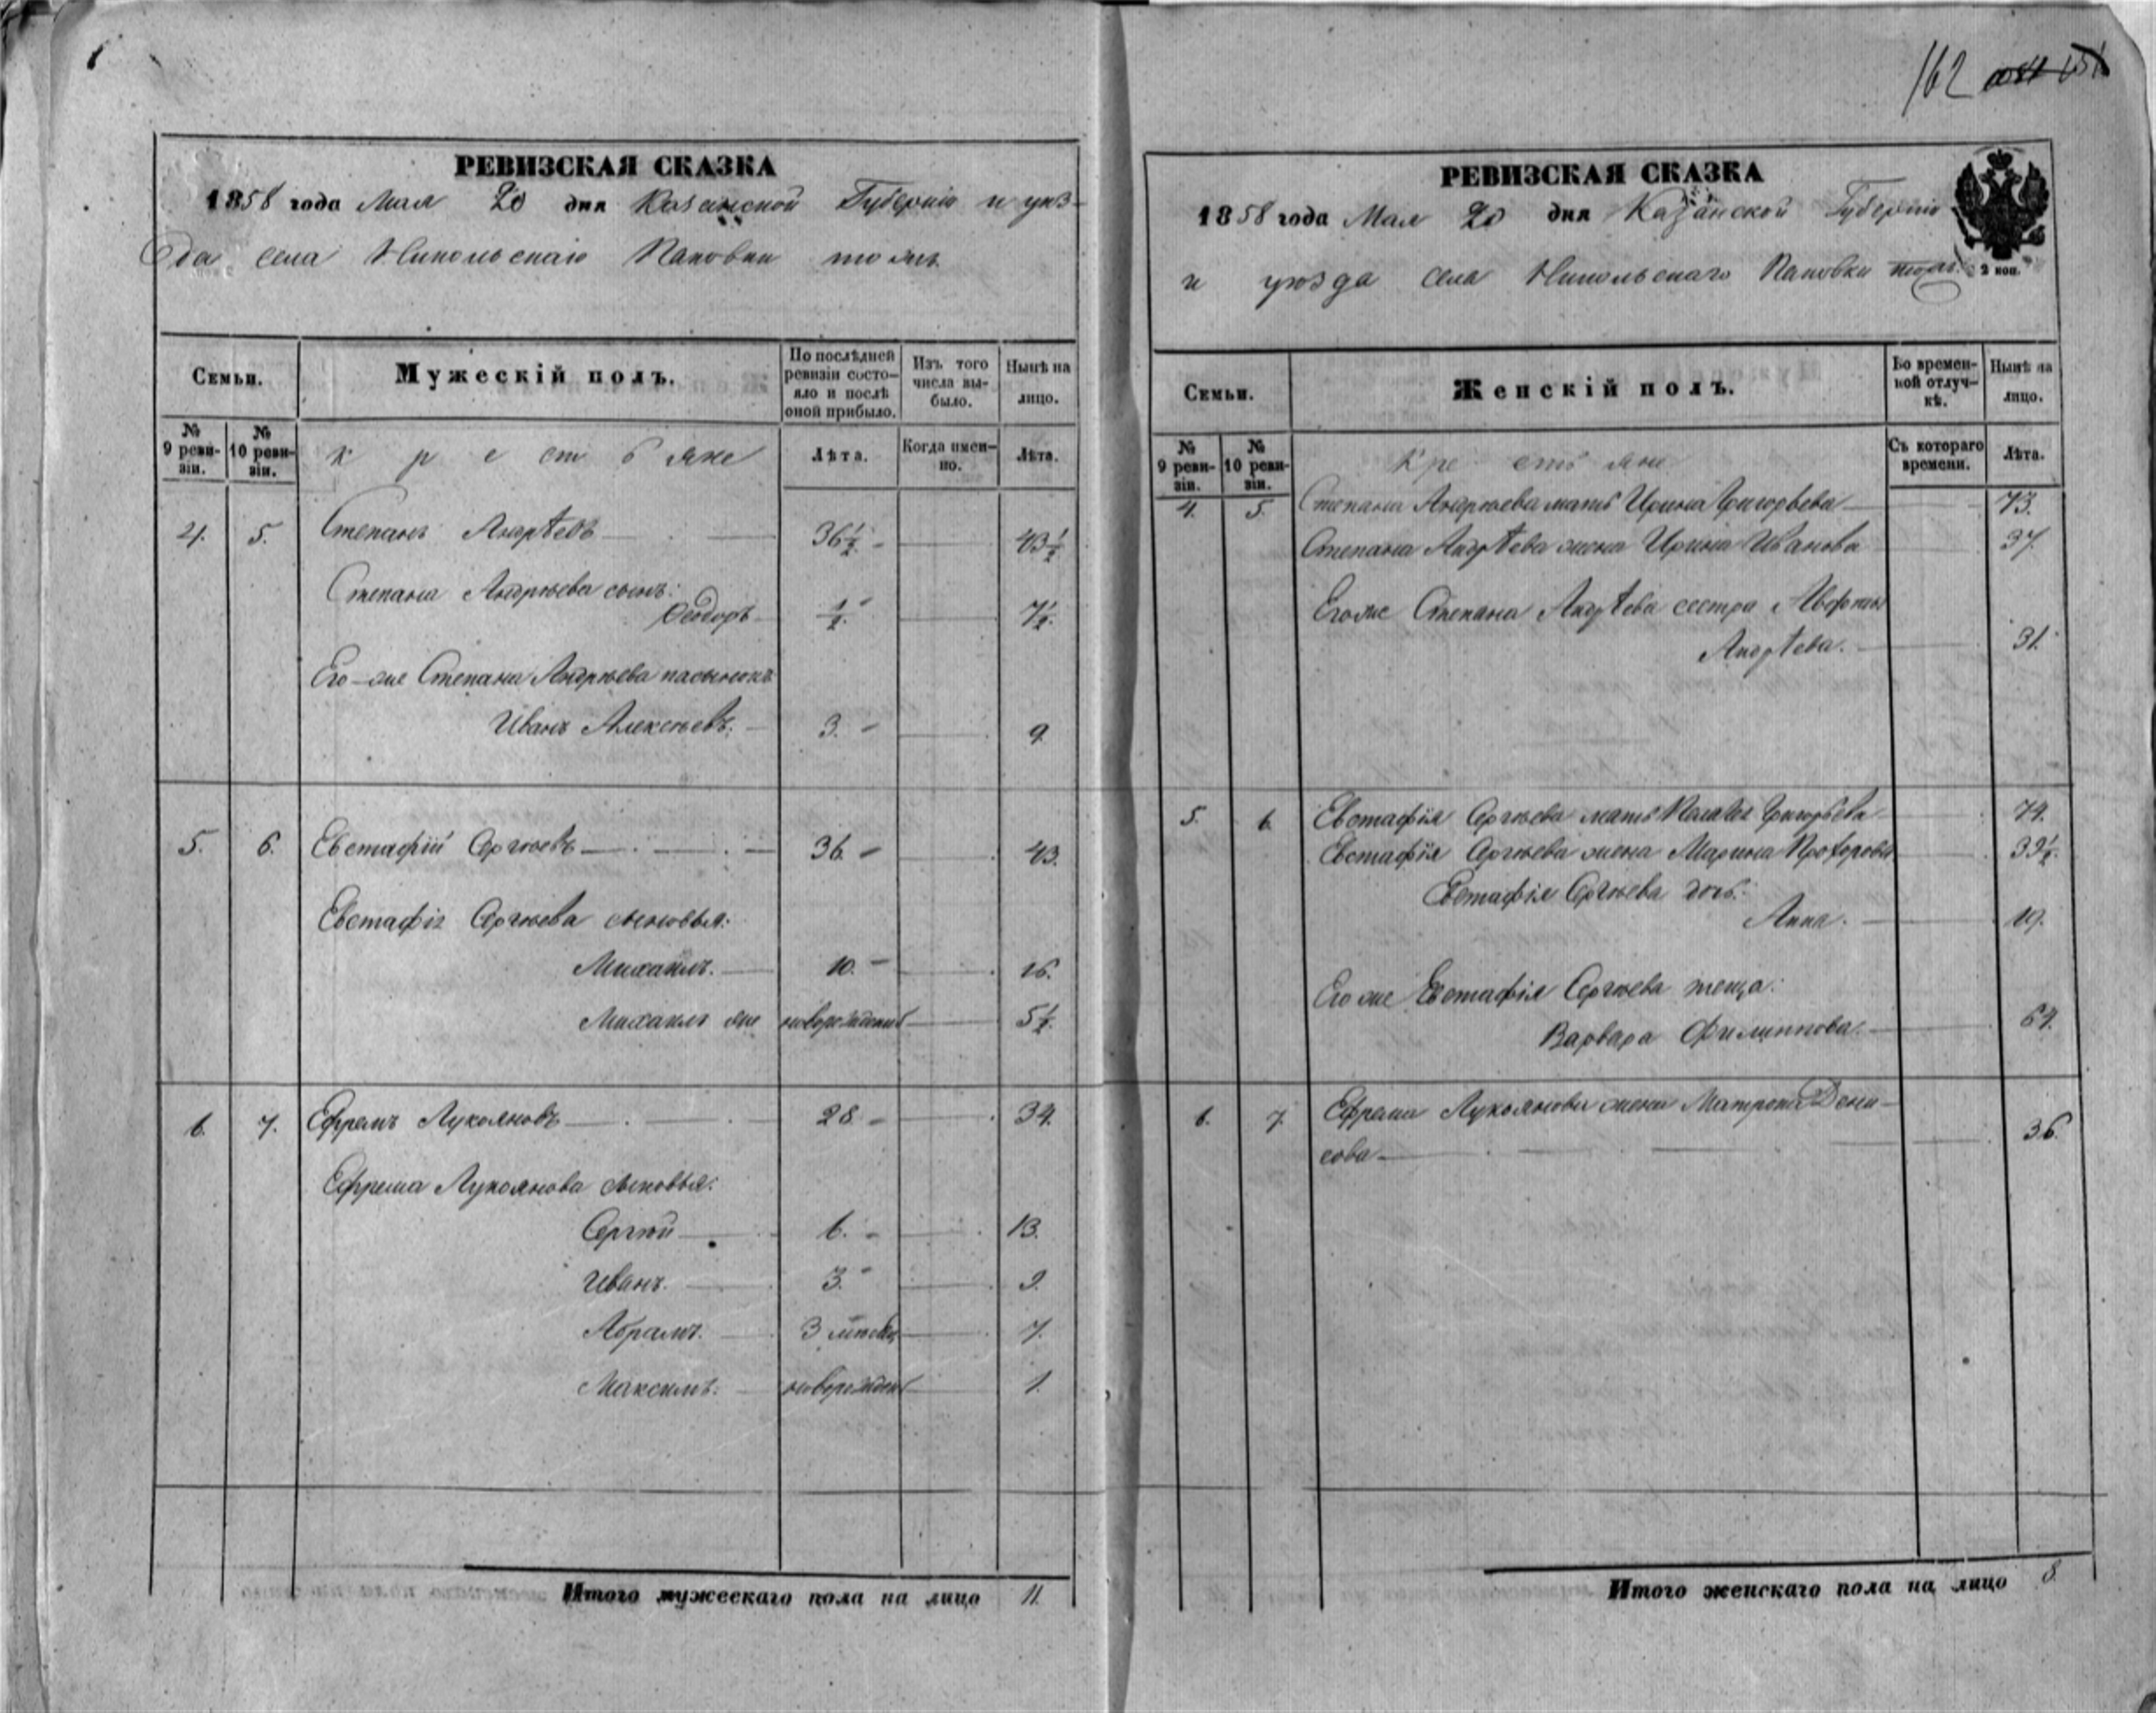 162
РЕВИЗСКАЯ СКАЗКА
1858 года Мая 20 дня Казанской Губерніи и уѣз-
да села Никольскаго Паповки тожъ
Семьи.
Мужескій полъ.
По послѣдней ревизіи состояло и послѣ оной прибыло.
Изъ того числа выбыло.
Нынѣ на лицо.
№ 9 ревизіи.
№ 10 ревизіи.
крестьяне
Лѣта.
Когда именно.
Лѣта.
4. 5. Степанъ Андрѣевъ 36½ 43½
Степана Андрѣева сынъ:
Ѳеодоръ ½ 7½
Его-же Степана Андрѣева пасынокъ
Иванъ Алексѣевъ. 3. 9
5. 6. Евстафій Сергѣевъ 36. 43.
Евстафія Сергѣева сыновья:
Михаилъ. 10. 16.
Михаилъ же новорожденный 5½
6. 7. Ефремъ Лукояновъ 28. 34.
Ефрема Лукоянова сыновья:
Сергѣй 6. 13.
Иванъ. 3. 9.
Абрамъ. 3 7.
Максимъ. новорожден 1.
Итого мужескаго пола на лицо 11.
РЕВИЗСКАЯ СКАЗКА
1858 года Мая 20 дня Казанской Губерніи
и уѣзда села Никольскаго Паповки тожъ.
2 коп.
Семьи.
Женскій полъ.
Во временной отлучкѣ.
Нынѣ на лицо.
№ 9 ревизіи.
№ 10 ревизіи.
Крестьяне
Съ котораго времени.
Лѣта.
4. 5. Степана Андрѣева мать Ирина Григорьева 73.
Степана Андрѣева жена Ирина Иванова 37.
Его же Степана Андрѣева сестра
Андрѣева. 31.
5. 6. Евстафія Сергѣева мать Григорьева 74.
Евстафія Сергѣева жена Марина Прохорова 39½
Евстафія Сергѣева дочь:
Анна. 19.
Его же Евстафія Сергѣева теща:
Варвара Филиппова. 64.
6. 7. Ефрема Лукоянова жена Матрена Дени-
сова 36.
Итого женскаго пола на лицо 8.